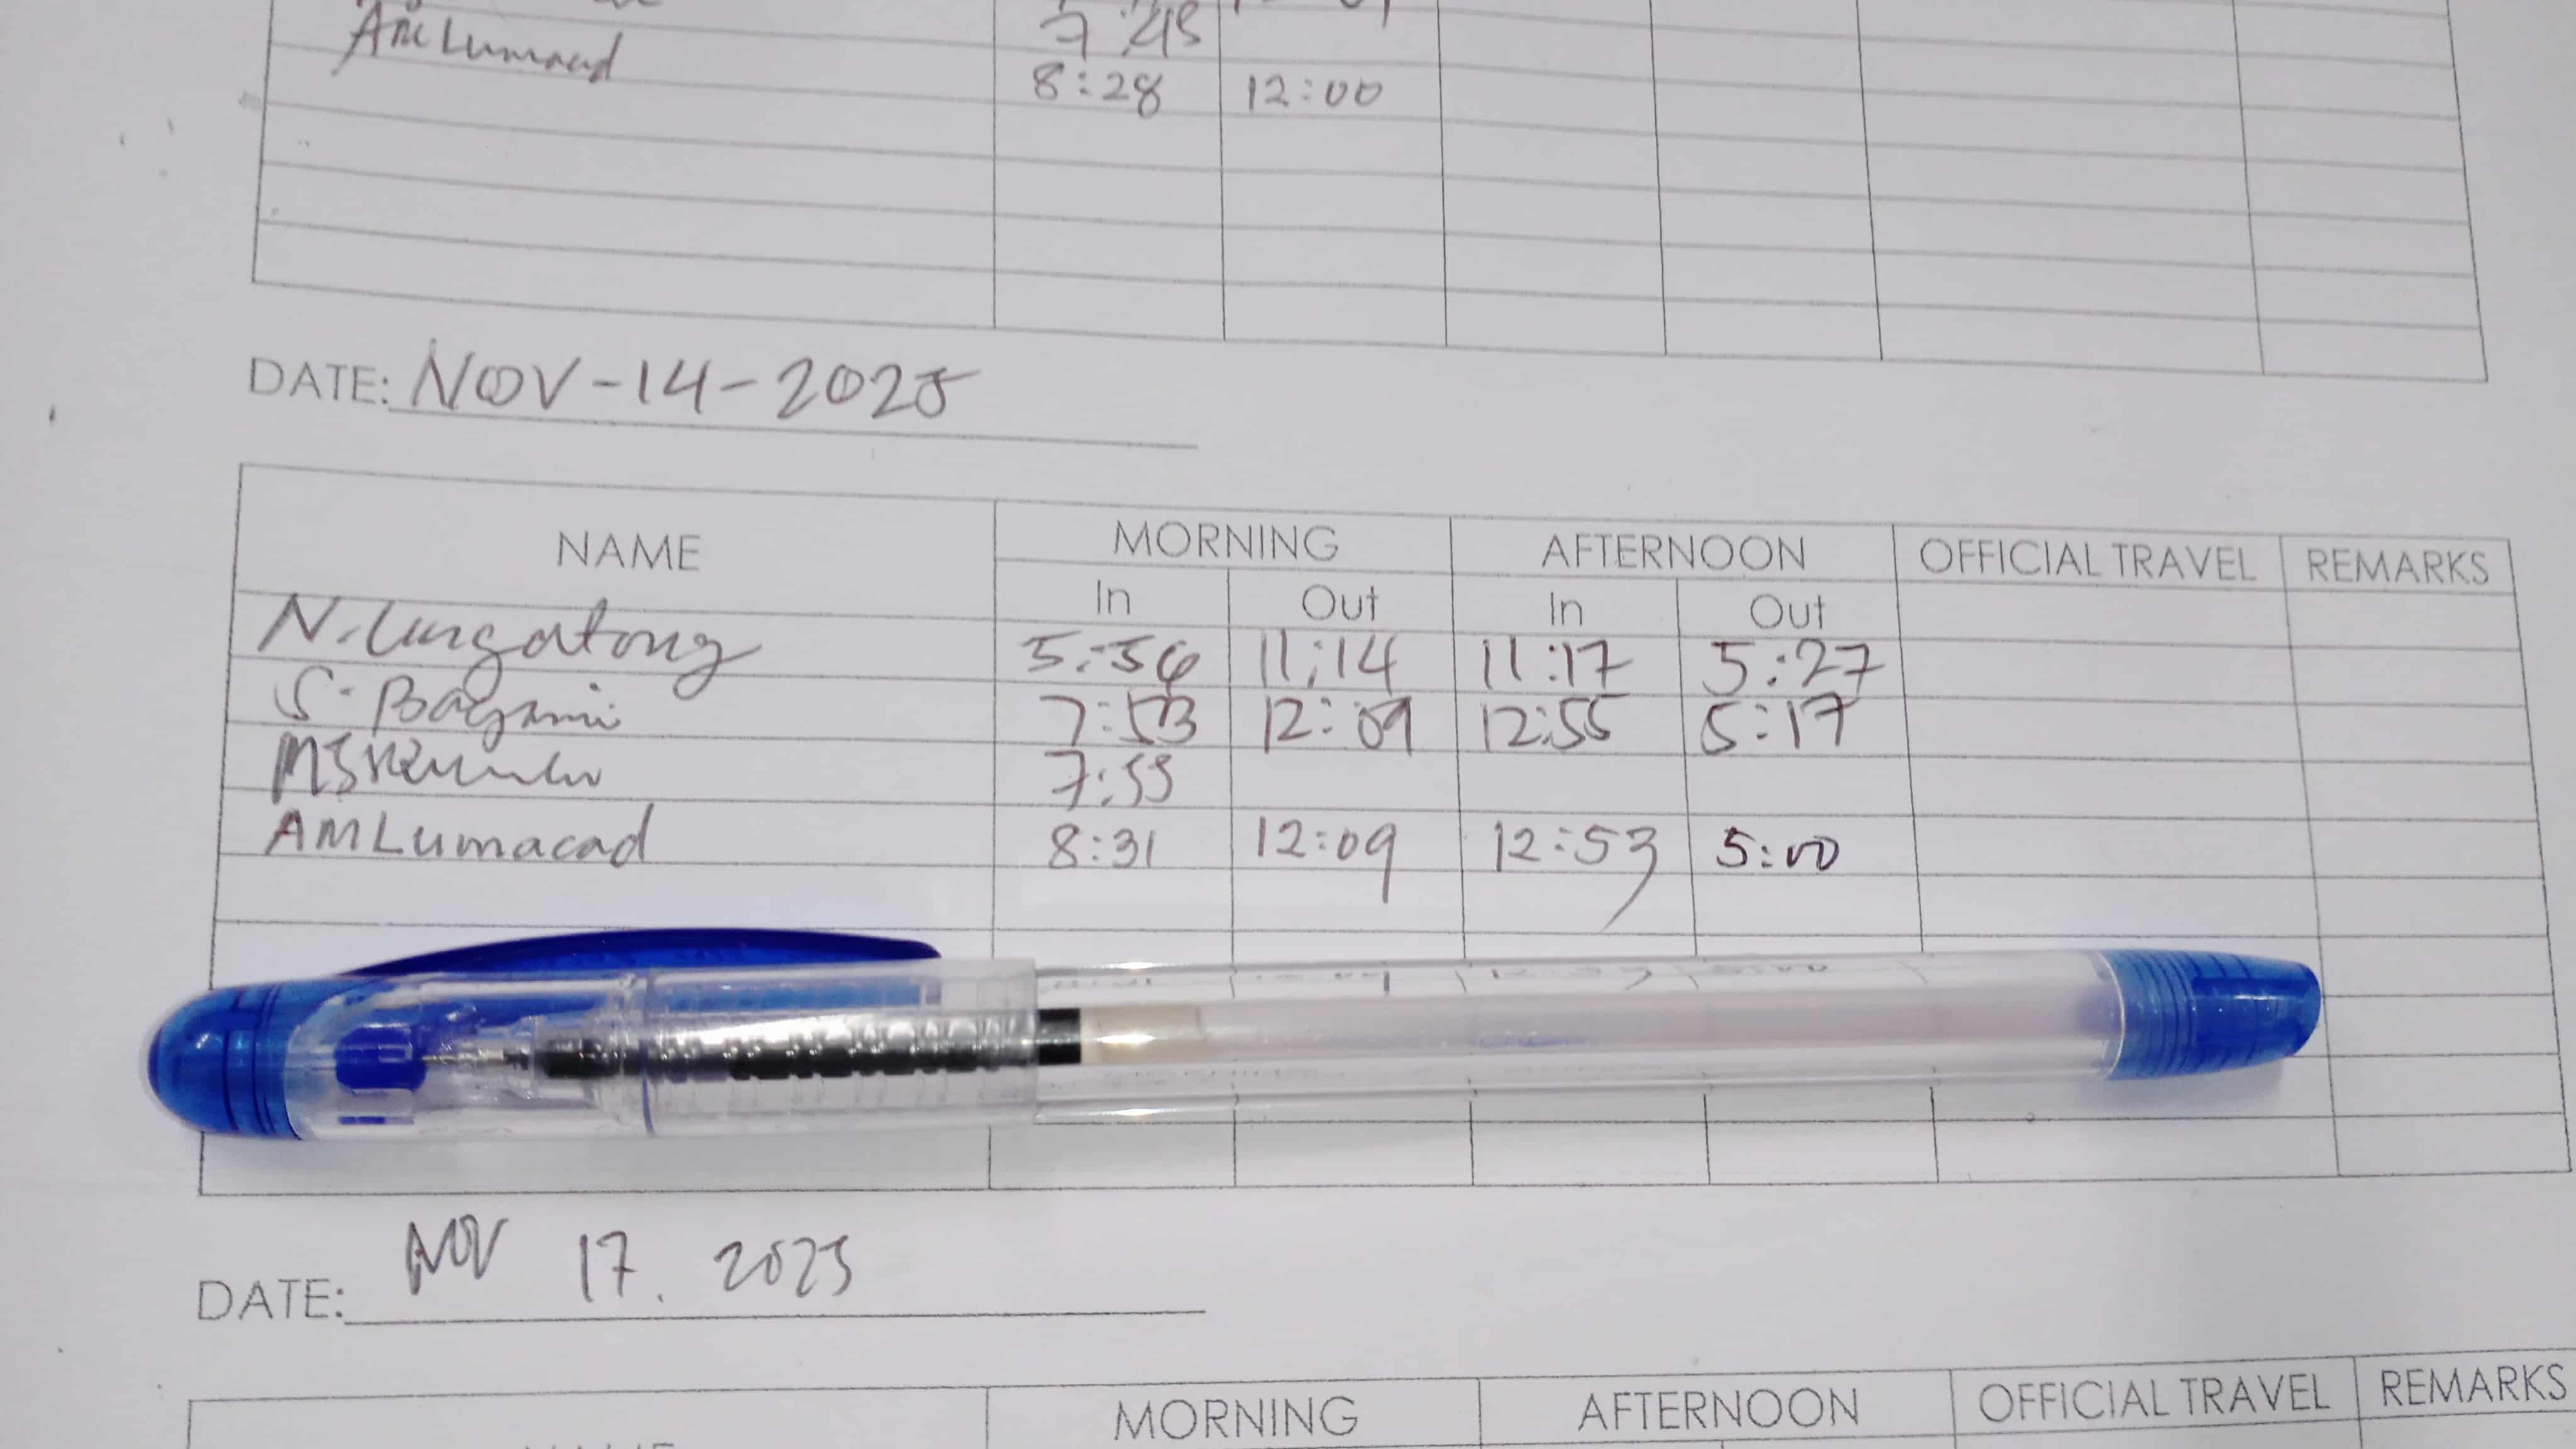 AMLumacad 7:45
8:28 12:00
DATE: NOV-14-2025
NAME MORNING AFTERNOON OFFICIAL TRAVEL REMARKS
In Out In Out
N. Lungatong 5:56 11:14 11:17 5:27
S. 7:53 12:09 12:55 5:17
7:55
AMLumacad 8:31 12:09 12:53 5:00
DATE: NOV 17. 2025
MORNING AFTERNOON OFFICIAL TRAVEL REMARKS